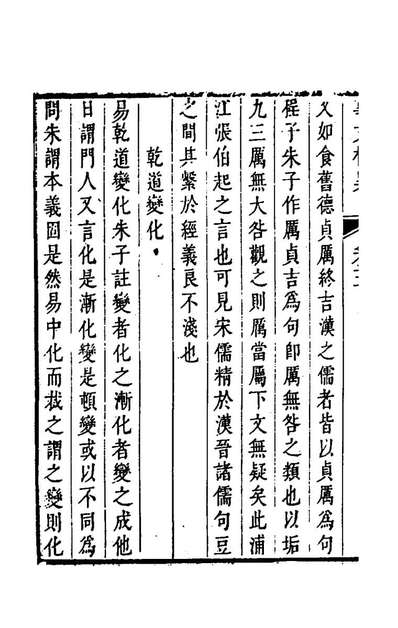 又如食舊德貞厲終吉漢之儒者皆以貞厲為句
程子朱子作厲貞吉為句即厲無咎之類也以垢
九三厲無大咎觀之則厲當屬下文無疑矣此浦
江張伯起之言也可見宋儒精於漢晉諸儒句豆
之間其繫於經義良不淺也
乾道變化
易乾道變化朱子註變者化之漸化者變之成他
日謂門人又言化是漸化變是頓變或以不同為
問朱謂本義固是然易中化而裁之謂之變則化